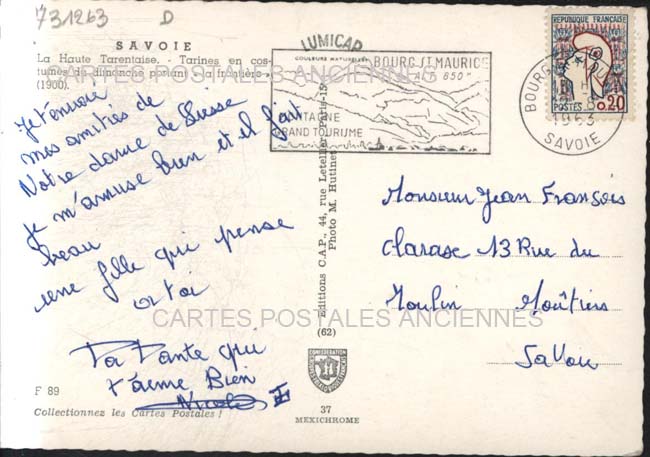 731263 D
SAVOIE
La Haute Tarentaise. - Tarines en cos-
tumes du dimanche portant "la frontière"
(1900).
LUMICAP
COULEURS NATURELLES
BOURG ST MAURICE
ALT 850
MONTAGNE
GRAND TOURISME
REPUBLIQUE FRANÇAISE
POSTES 0,20
BOURG
1963
SAVOIE
CARTES POSTALES ANCIENNES
Je t'envoie
mes amitiés de
Notre dame de
je m'amuse bien et il fait
beau
une fille qui pense
a toi
Ta Tante qui
t'aime Bien
Nicole
Monsieur Jean François
Clarase 13 Rue du
Moulin Moûtiers
Savoie
Editions C.A.P., 44, rue Letellier, Paris-15e
Photo M. Hutinet
CARTES POSTALES ANCIENNES
(62)
F 89
Collectionnez les Cartes Postales !
37
MEXICHROME